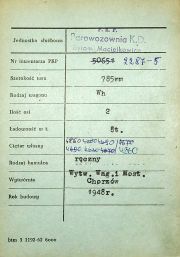 P.K.P.
Jednostka służbowa Parowozownia K.D.
Bytom Maciejkowice
Nr inwentarza PKP 50654 2287-5
Szerokość toru 785mm
Rodzaj wagonu Wh
Ilość osi 2
Ładowność w t. 5t.
Ciężar własny
4360
Rodzaj hamulca ręczny
Wytwórnia Wytw. Wag. i Most.
Chorzów
Rok budowy 1948r.